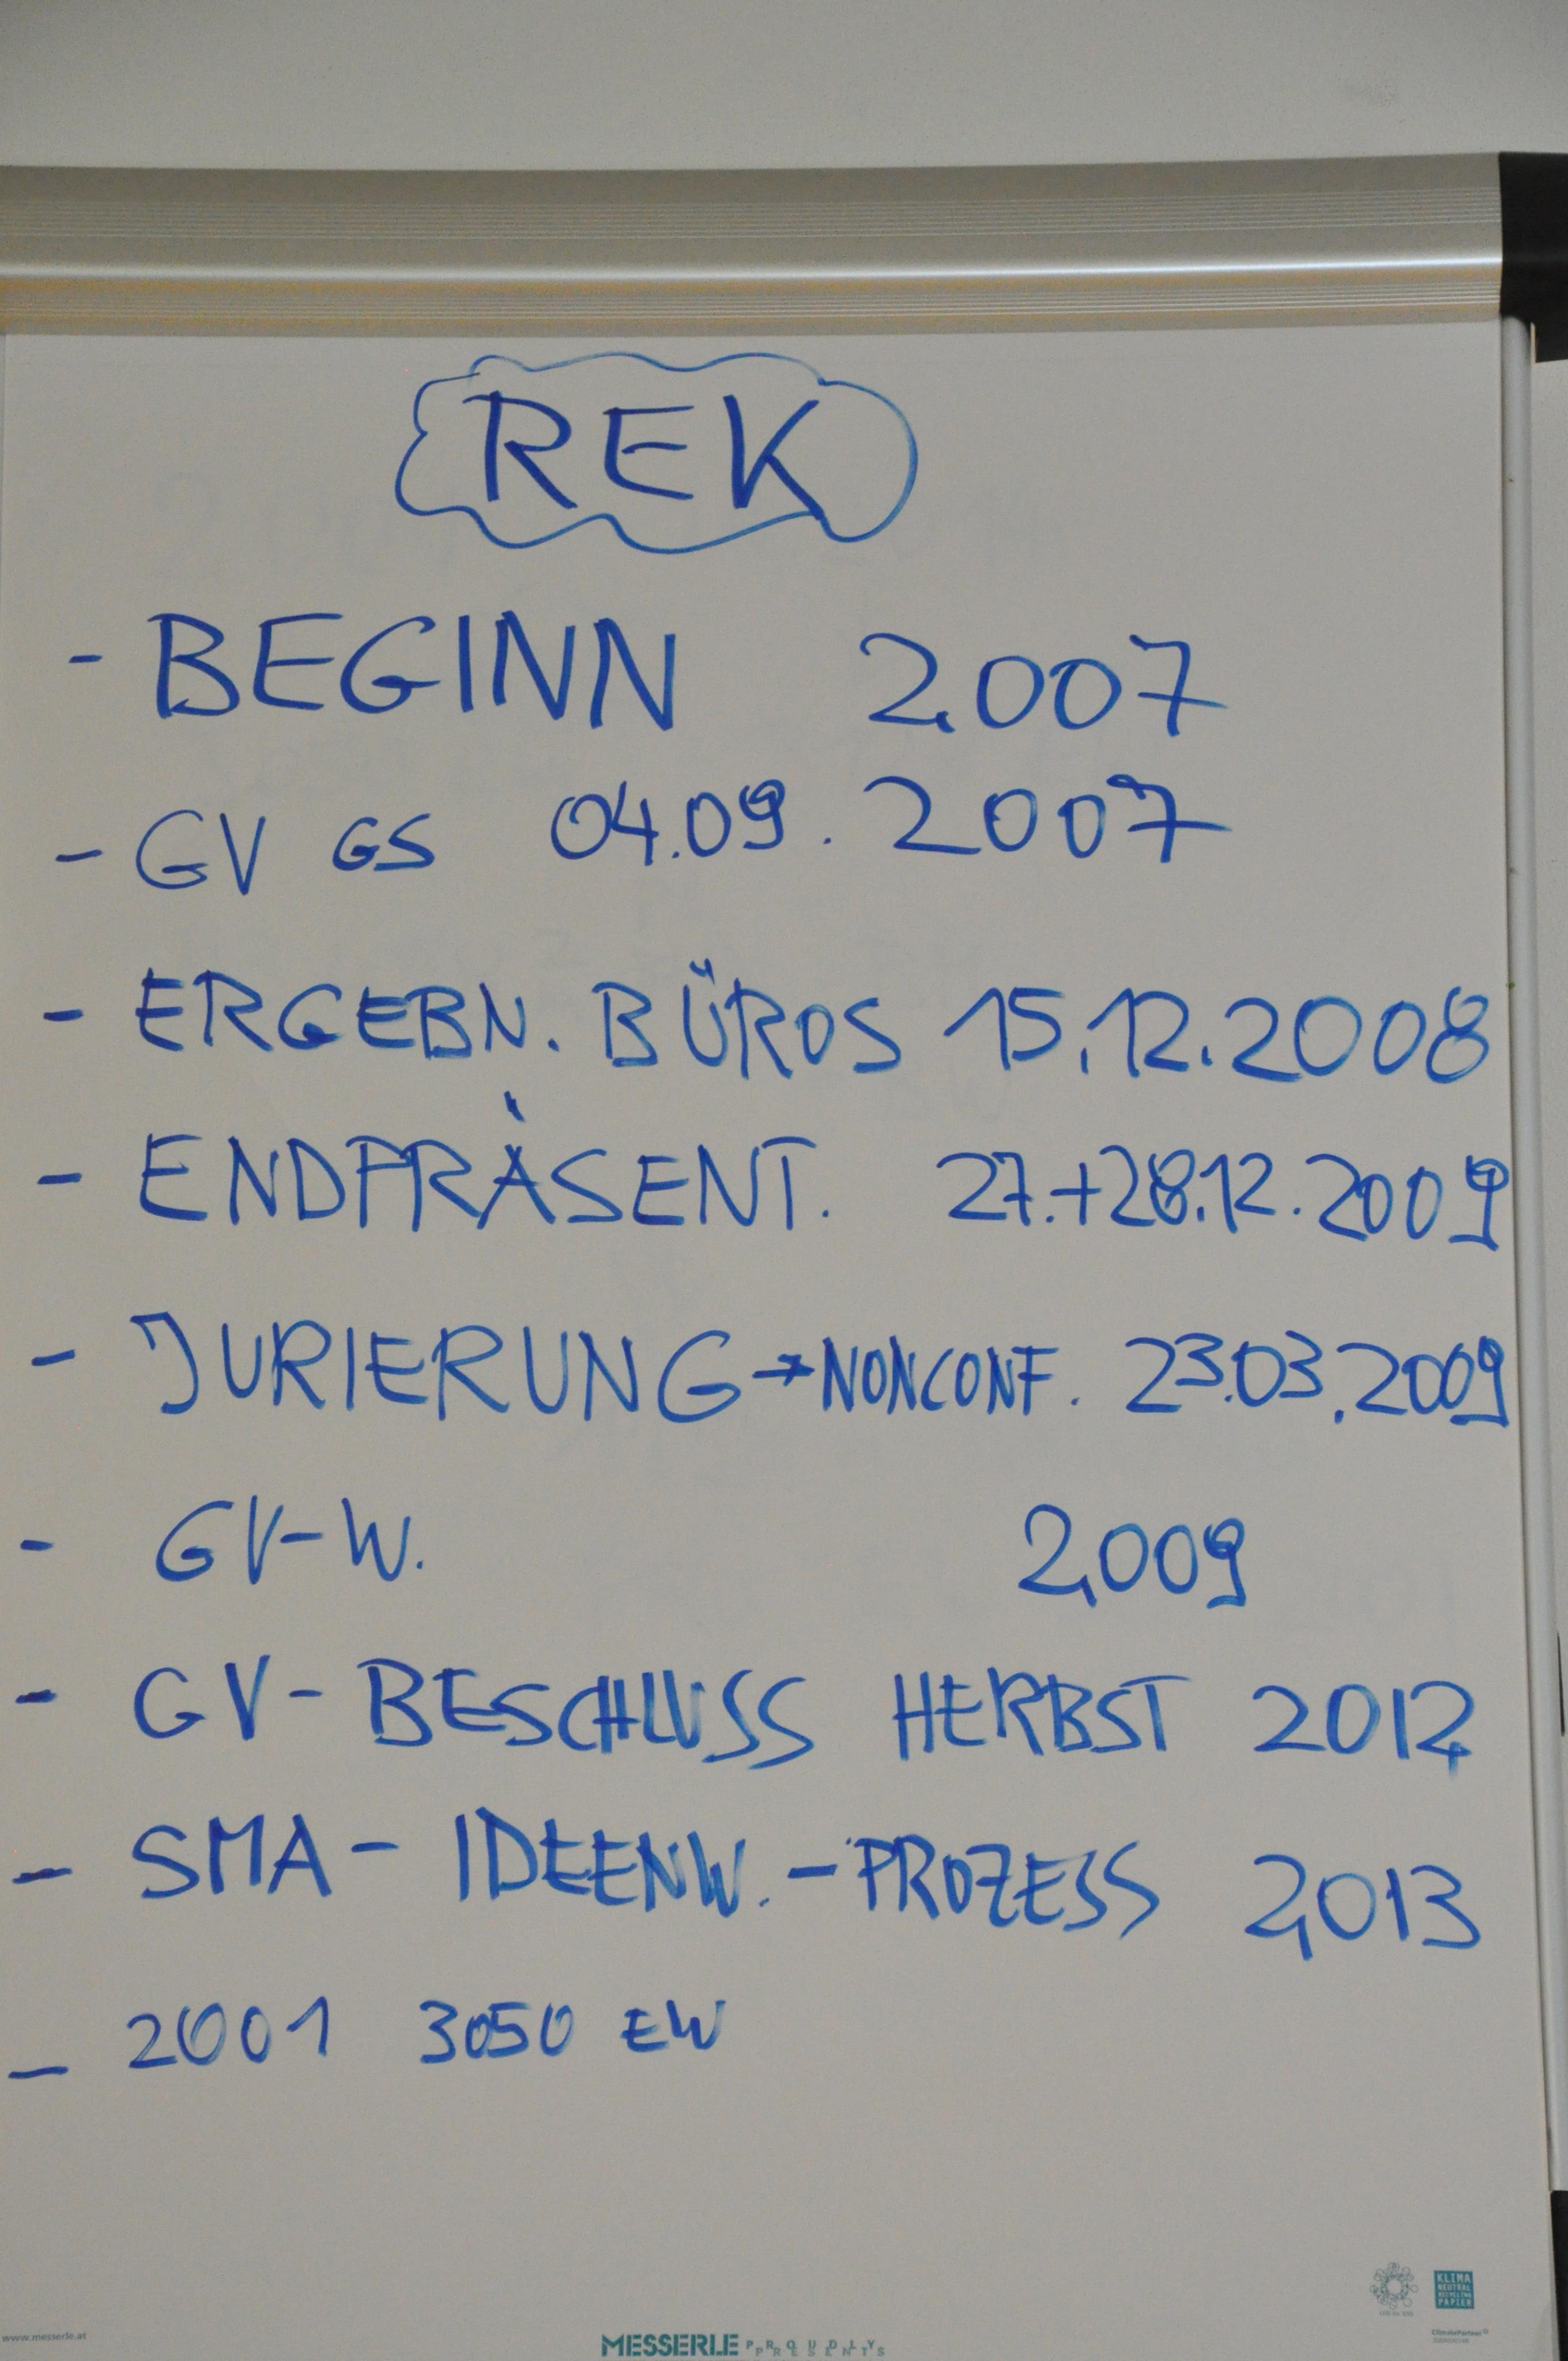 REK
- BEGINN 2007
- GV GS 04.09.2007
- ERGEBN. BÜROS 15.12.2008
- ENDPRÄSENT. 27.+28.12.2009
- JURIERUNG → NONCONF. 23.03.2009
- GV-W. 2009
- GV-BESCHLUSS HERBST 2012
- SMA- IDEENW.-PROZESS 2013
- 2001 3050 EW
KLIMA
NEUTRAL
RECYCLING
PAPIER
ClimatePartner
www.messerle.at
MESSERLE PROUDLY PRESENTS